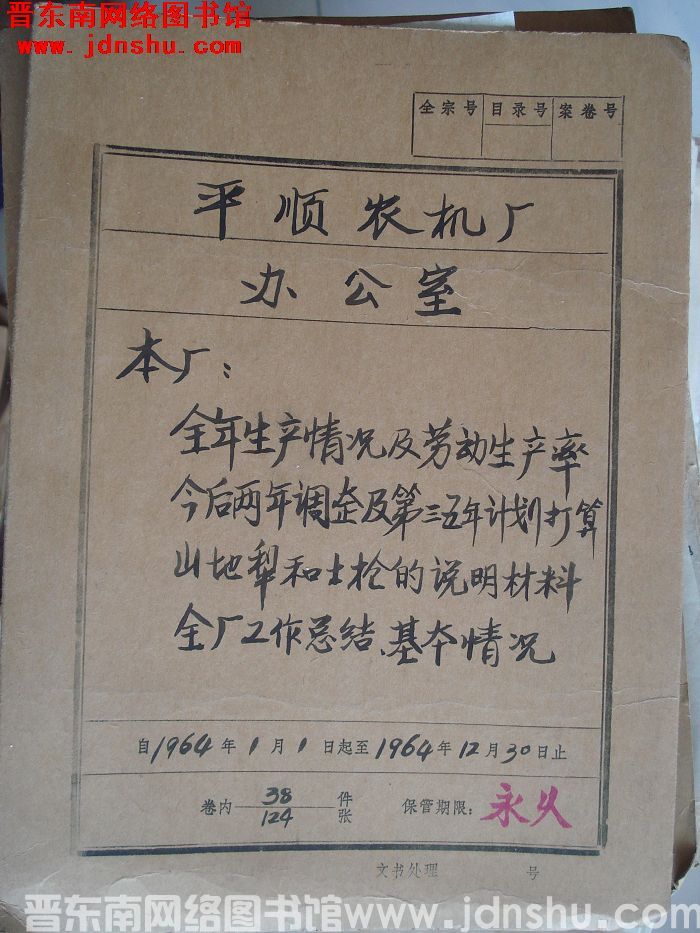 晋东南网络图书馆
www.jdnshu.com
全宗号 目录号 案卷号
平顺农机厂
办公室
本厂：
全年生产情况及劳动生产率
今后两年调整及第三五年计划打算
山地犁和土枪的说明材料
全厂工作总结、基本情况
自1964年1月1日起至1964年12月30日止
卷内 38 件 保管期限：永久
124 张
文书处理 号
晋东南网络图书馆www.jdnshu.com